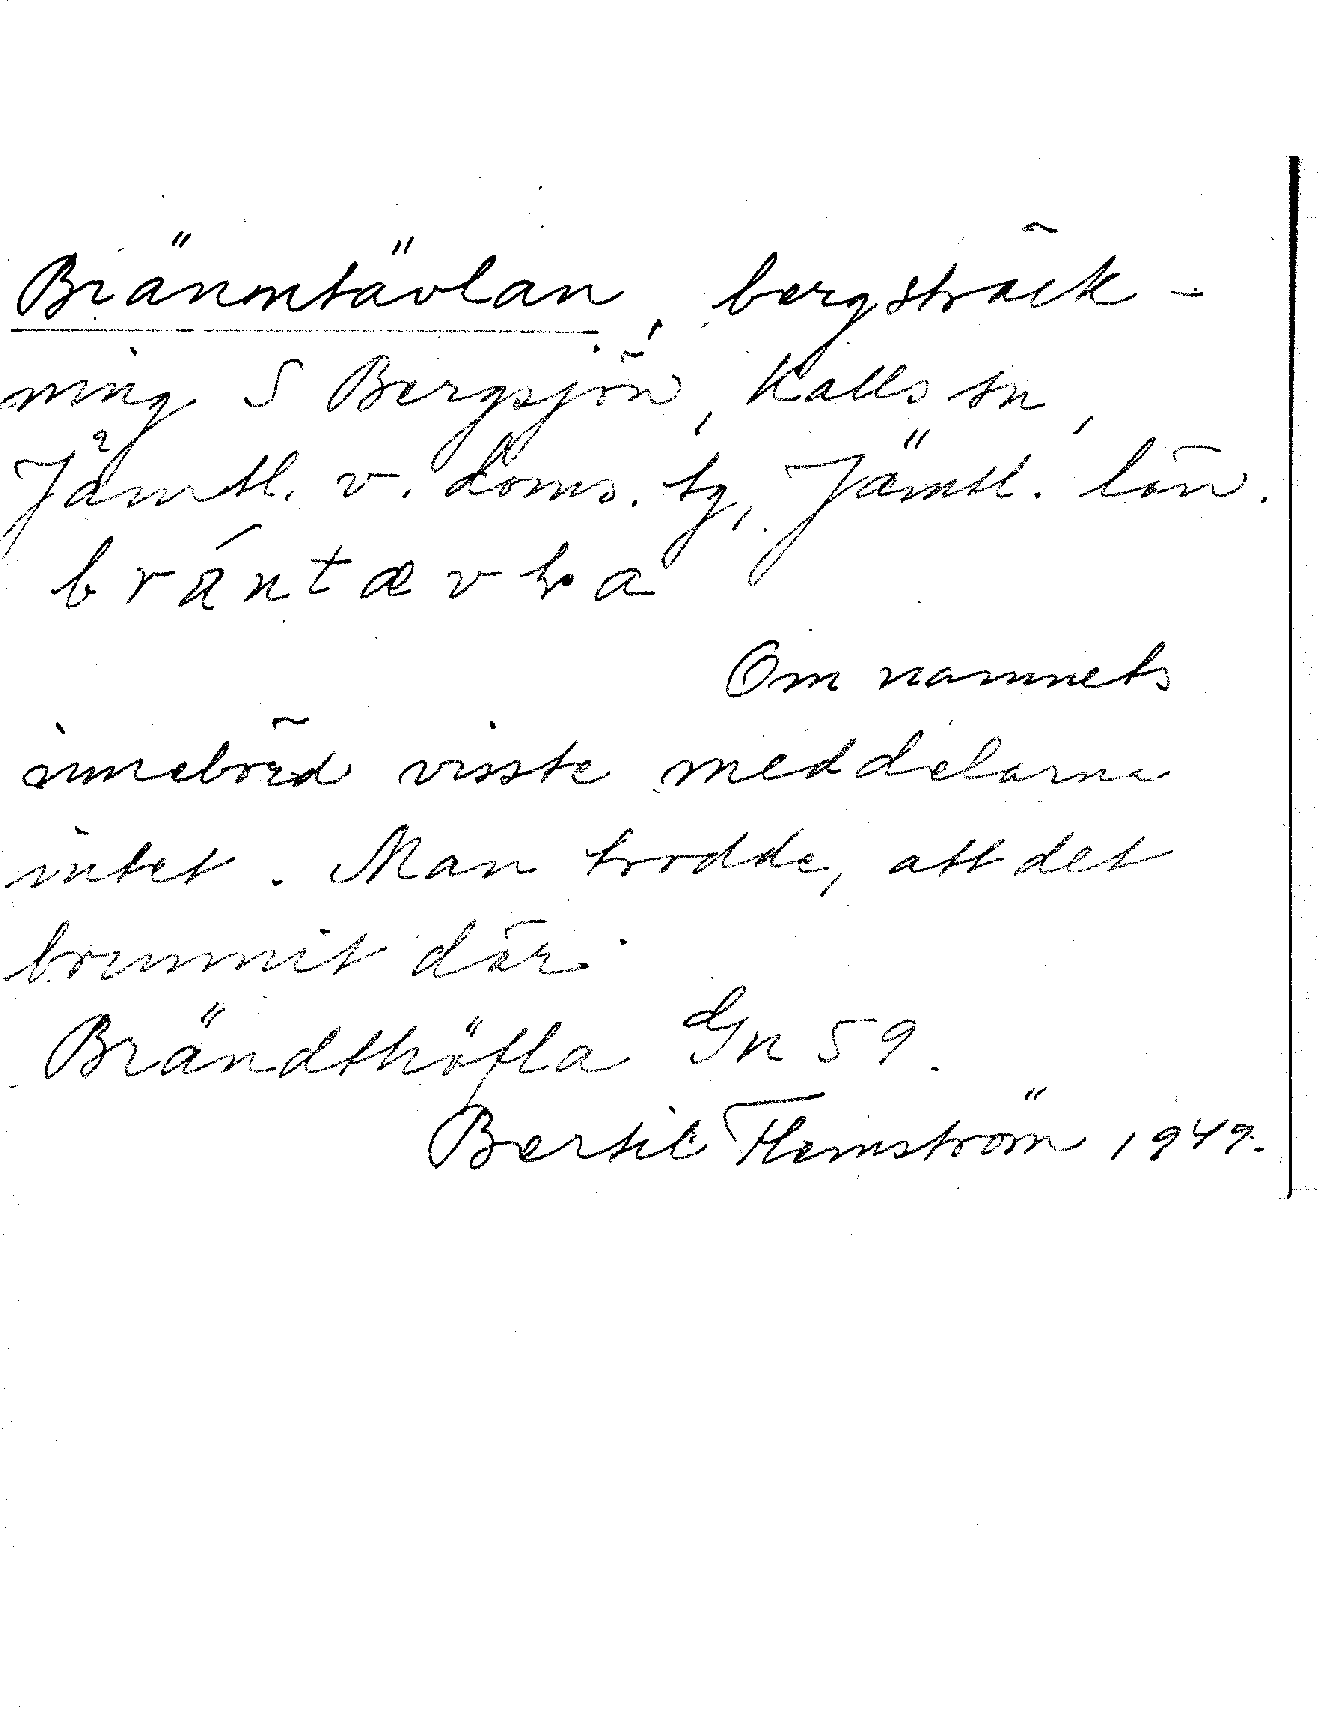 Bränntävlan, bergsträck-
ning S Bergsjön, Kalls sn,
Jämtl. v. doms. tg, Jämtl. län.
brántævla
Om namnets
innebörd visste meddelarna
intet. Man trodde, att det
brunnit där.
Brändthöfla Gn 59.
Bertil Flemström 1949.